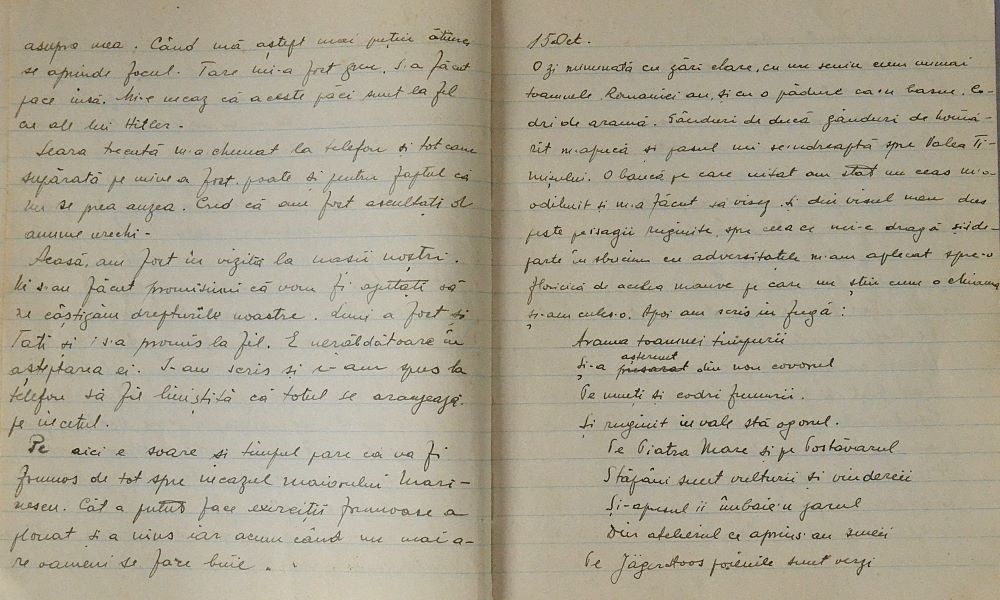 asupra mea. Când mă aștept mai puțin atunci
se aprinde focul. Tare mi-a fost greu. S-a făcut
pace însă. Mi-e necaz că aceste păci sunt la fel
ca ale lui Hitler.
Seara trecută m-a chemat la telefon și tot cam
supărată pe mine a fost, poate și pentru faptul că
nu se prea auzea. Cred că am fost ascultați de
anume urechi.
Acasă, am fost în vizită la nașii noștri.
Ni s-au făcut promisiuni că vom fi ajutați să
ne câștigăm drepturile noastre. Luni a fost și
Tati și i s-a promis la fel. E nerăbdătoare în
așteptarea ei. I-am scris și i-am spus la
telefon să fie liniștită că totul se aranjează
pe încetul.
Pe aici e soare și timpul pare ca va fi
frumos de tot spre necazul maiorului Mari-
nescu. Cât a putut face exerciții frumoase a
plouat și a nins iar acum când nu mai a-
re oameni se face bine.
15 Oct.
O zi minunată cu zări clare, cu un senin cum numai
toamnele României au, și cu o pădure ca-n basme. Co-
dri de aramă. Gânduri de ducă gânduri de hoină-
rit m-apucă și pasul mi se-ndreaptă spre Valea Ti-
mișului. O bancă pe care uitat am stat un ceas m-a
odihnit și m-a făcut să visez și din visul meu dus
peste peisagii ruginite, spre ceea ce mi-e dragă și-i de-
parte în sbucium cu adversitățile m-am aplecat spre-o
floricică de acelea mauve pe care nu știu cum o chiamă
și-am cules-o. Apoi am scris în fugă:
Arama toamnei timpurii
Și-a așternut din nou covorul
Pe munți și codri fumurii.
Și ruginit în vale stă ogorul.
Pe Piatra Mare și pe Postăvarul
Stăpâni sunt vulturii și vinderéii
Și-apusul îi îmbaie'n jarul
Din atelierul ce aprins-au smeii
Pe Jäger Hoos poienile sunt verzi